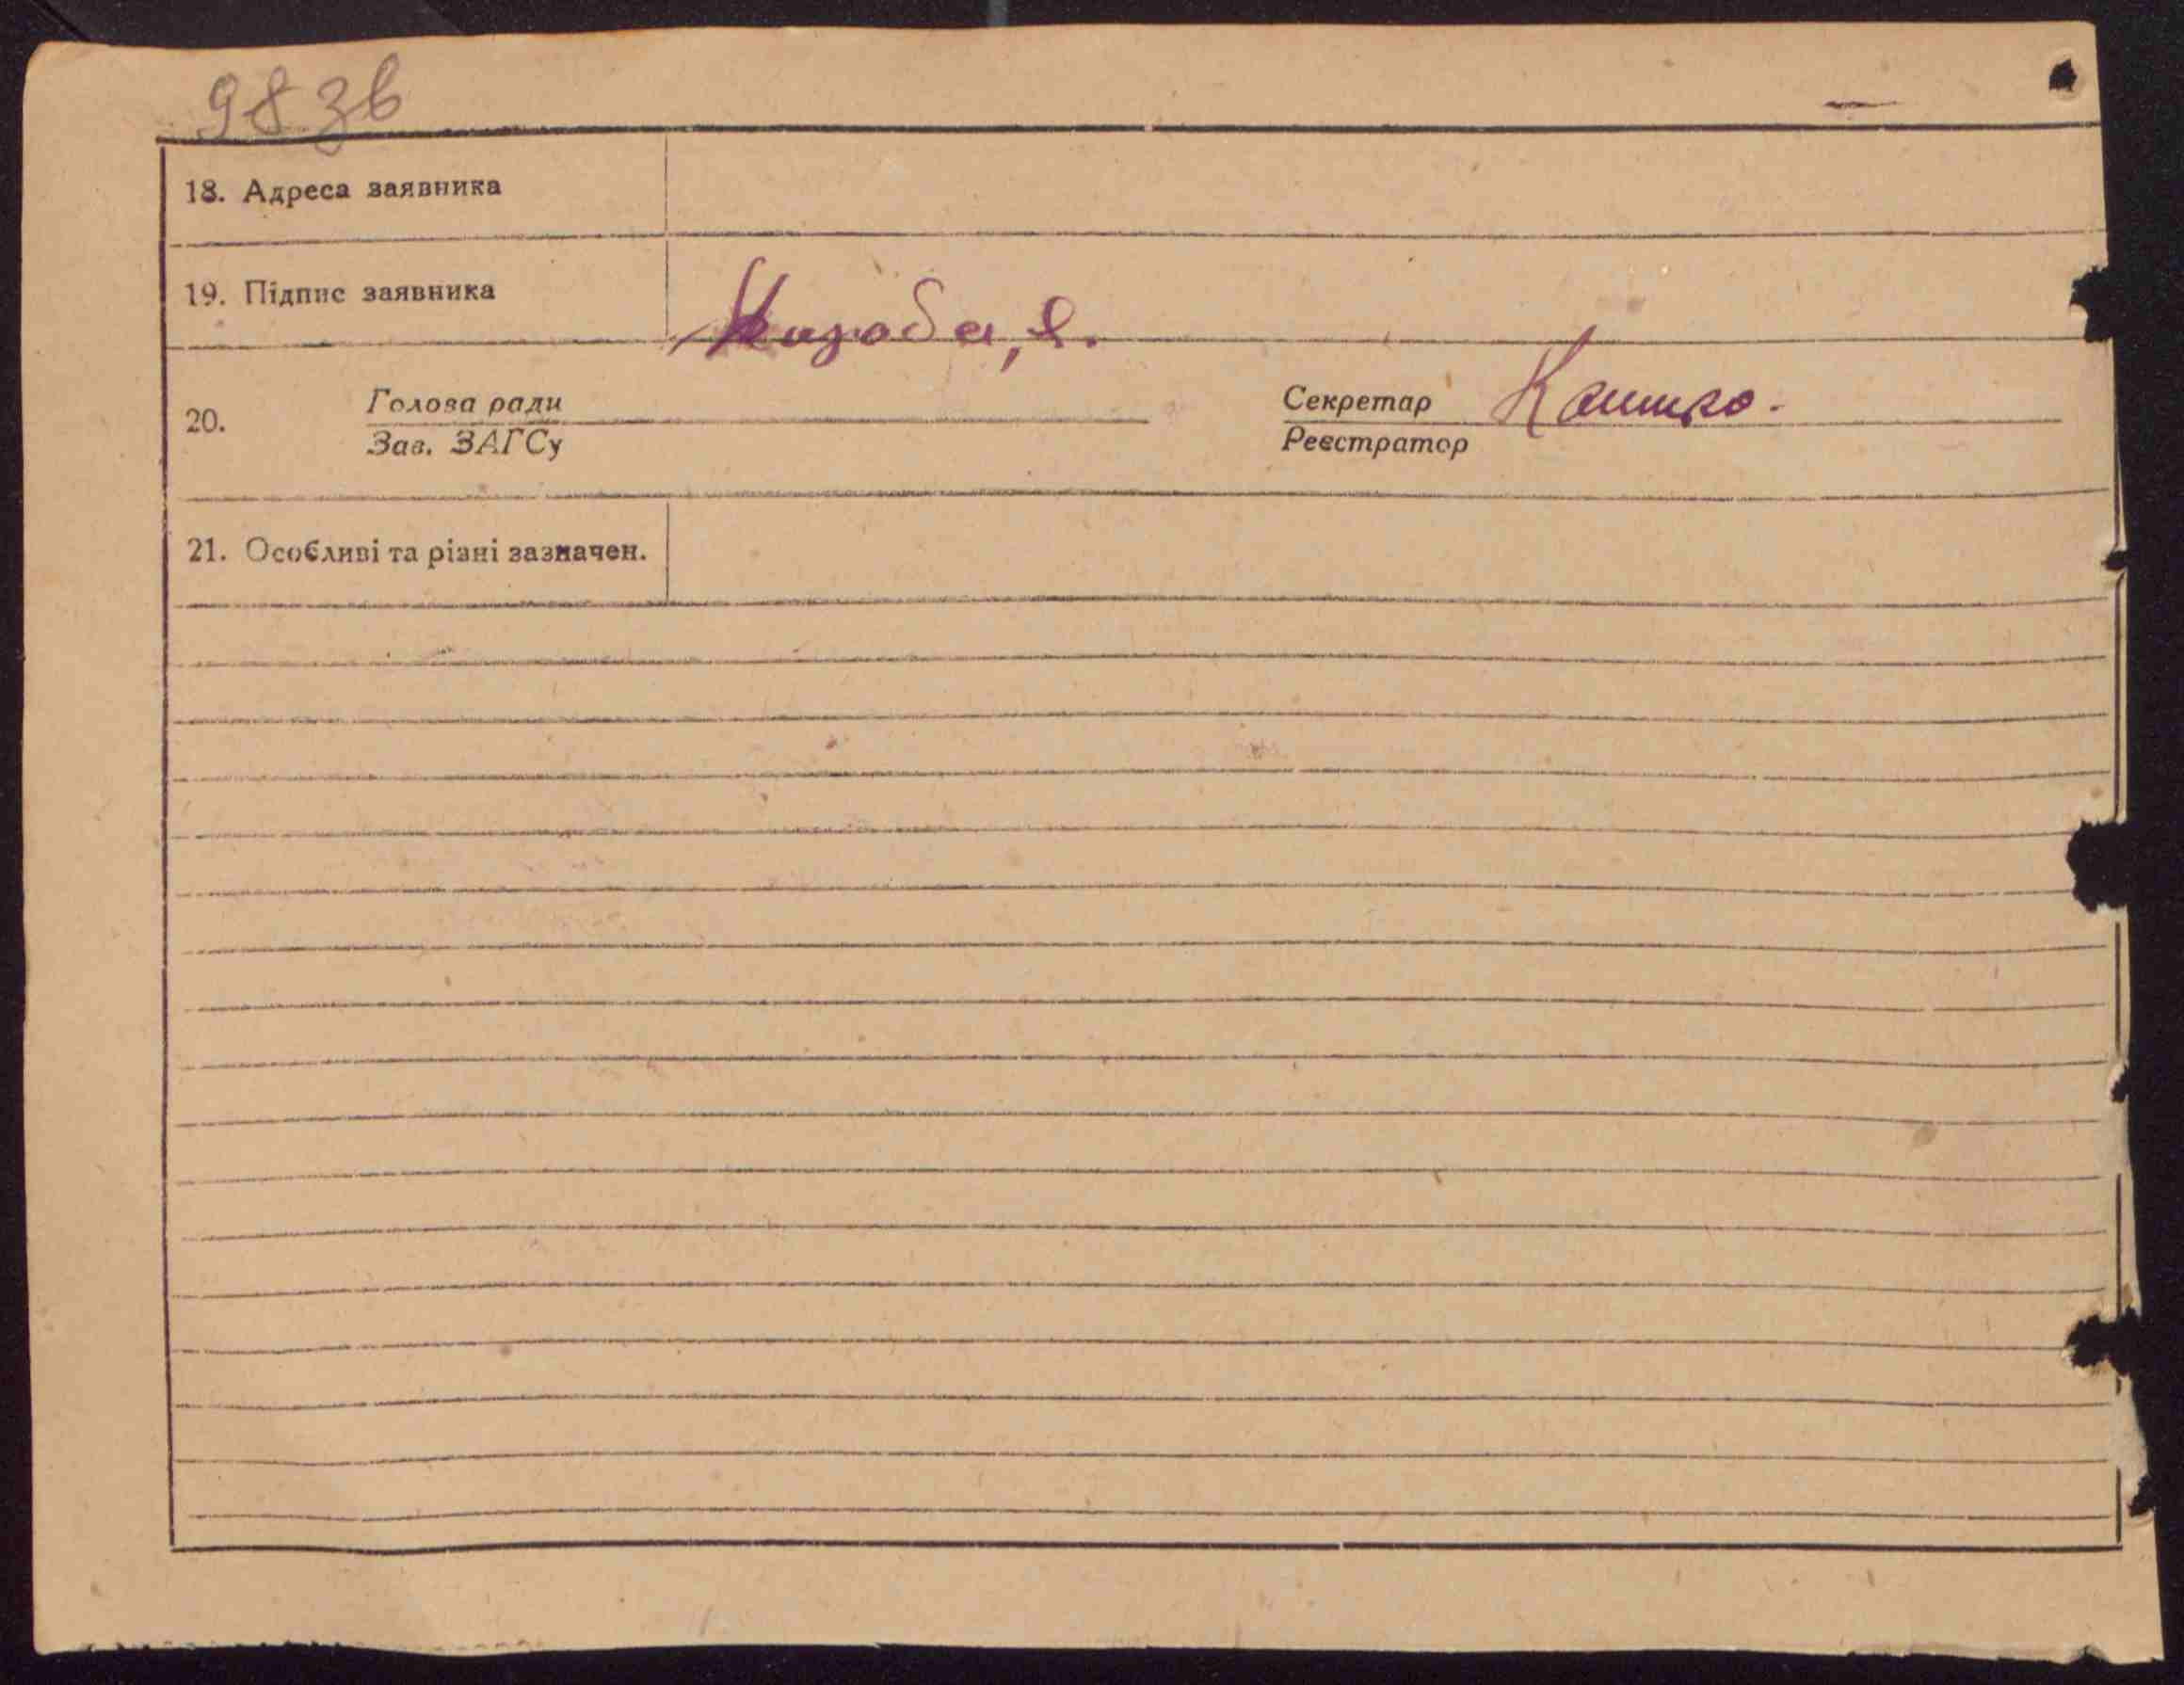 98 зв
18. Адреса заявника
19. Підпис заявника
20. Голова ради Секретар
Зав. ЗАГСу Реєстратор
21. Особливі та різні зазначен.